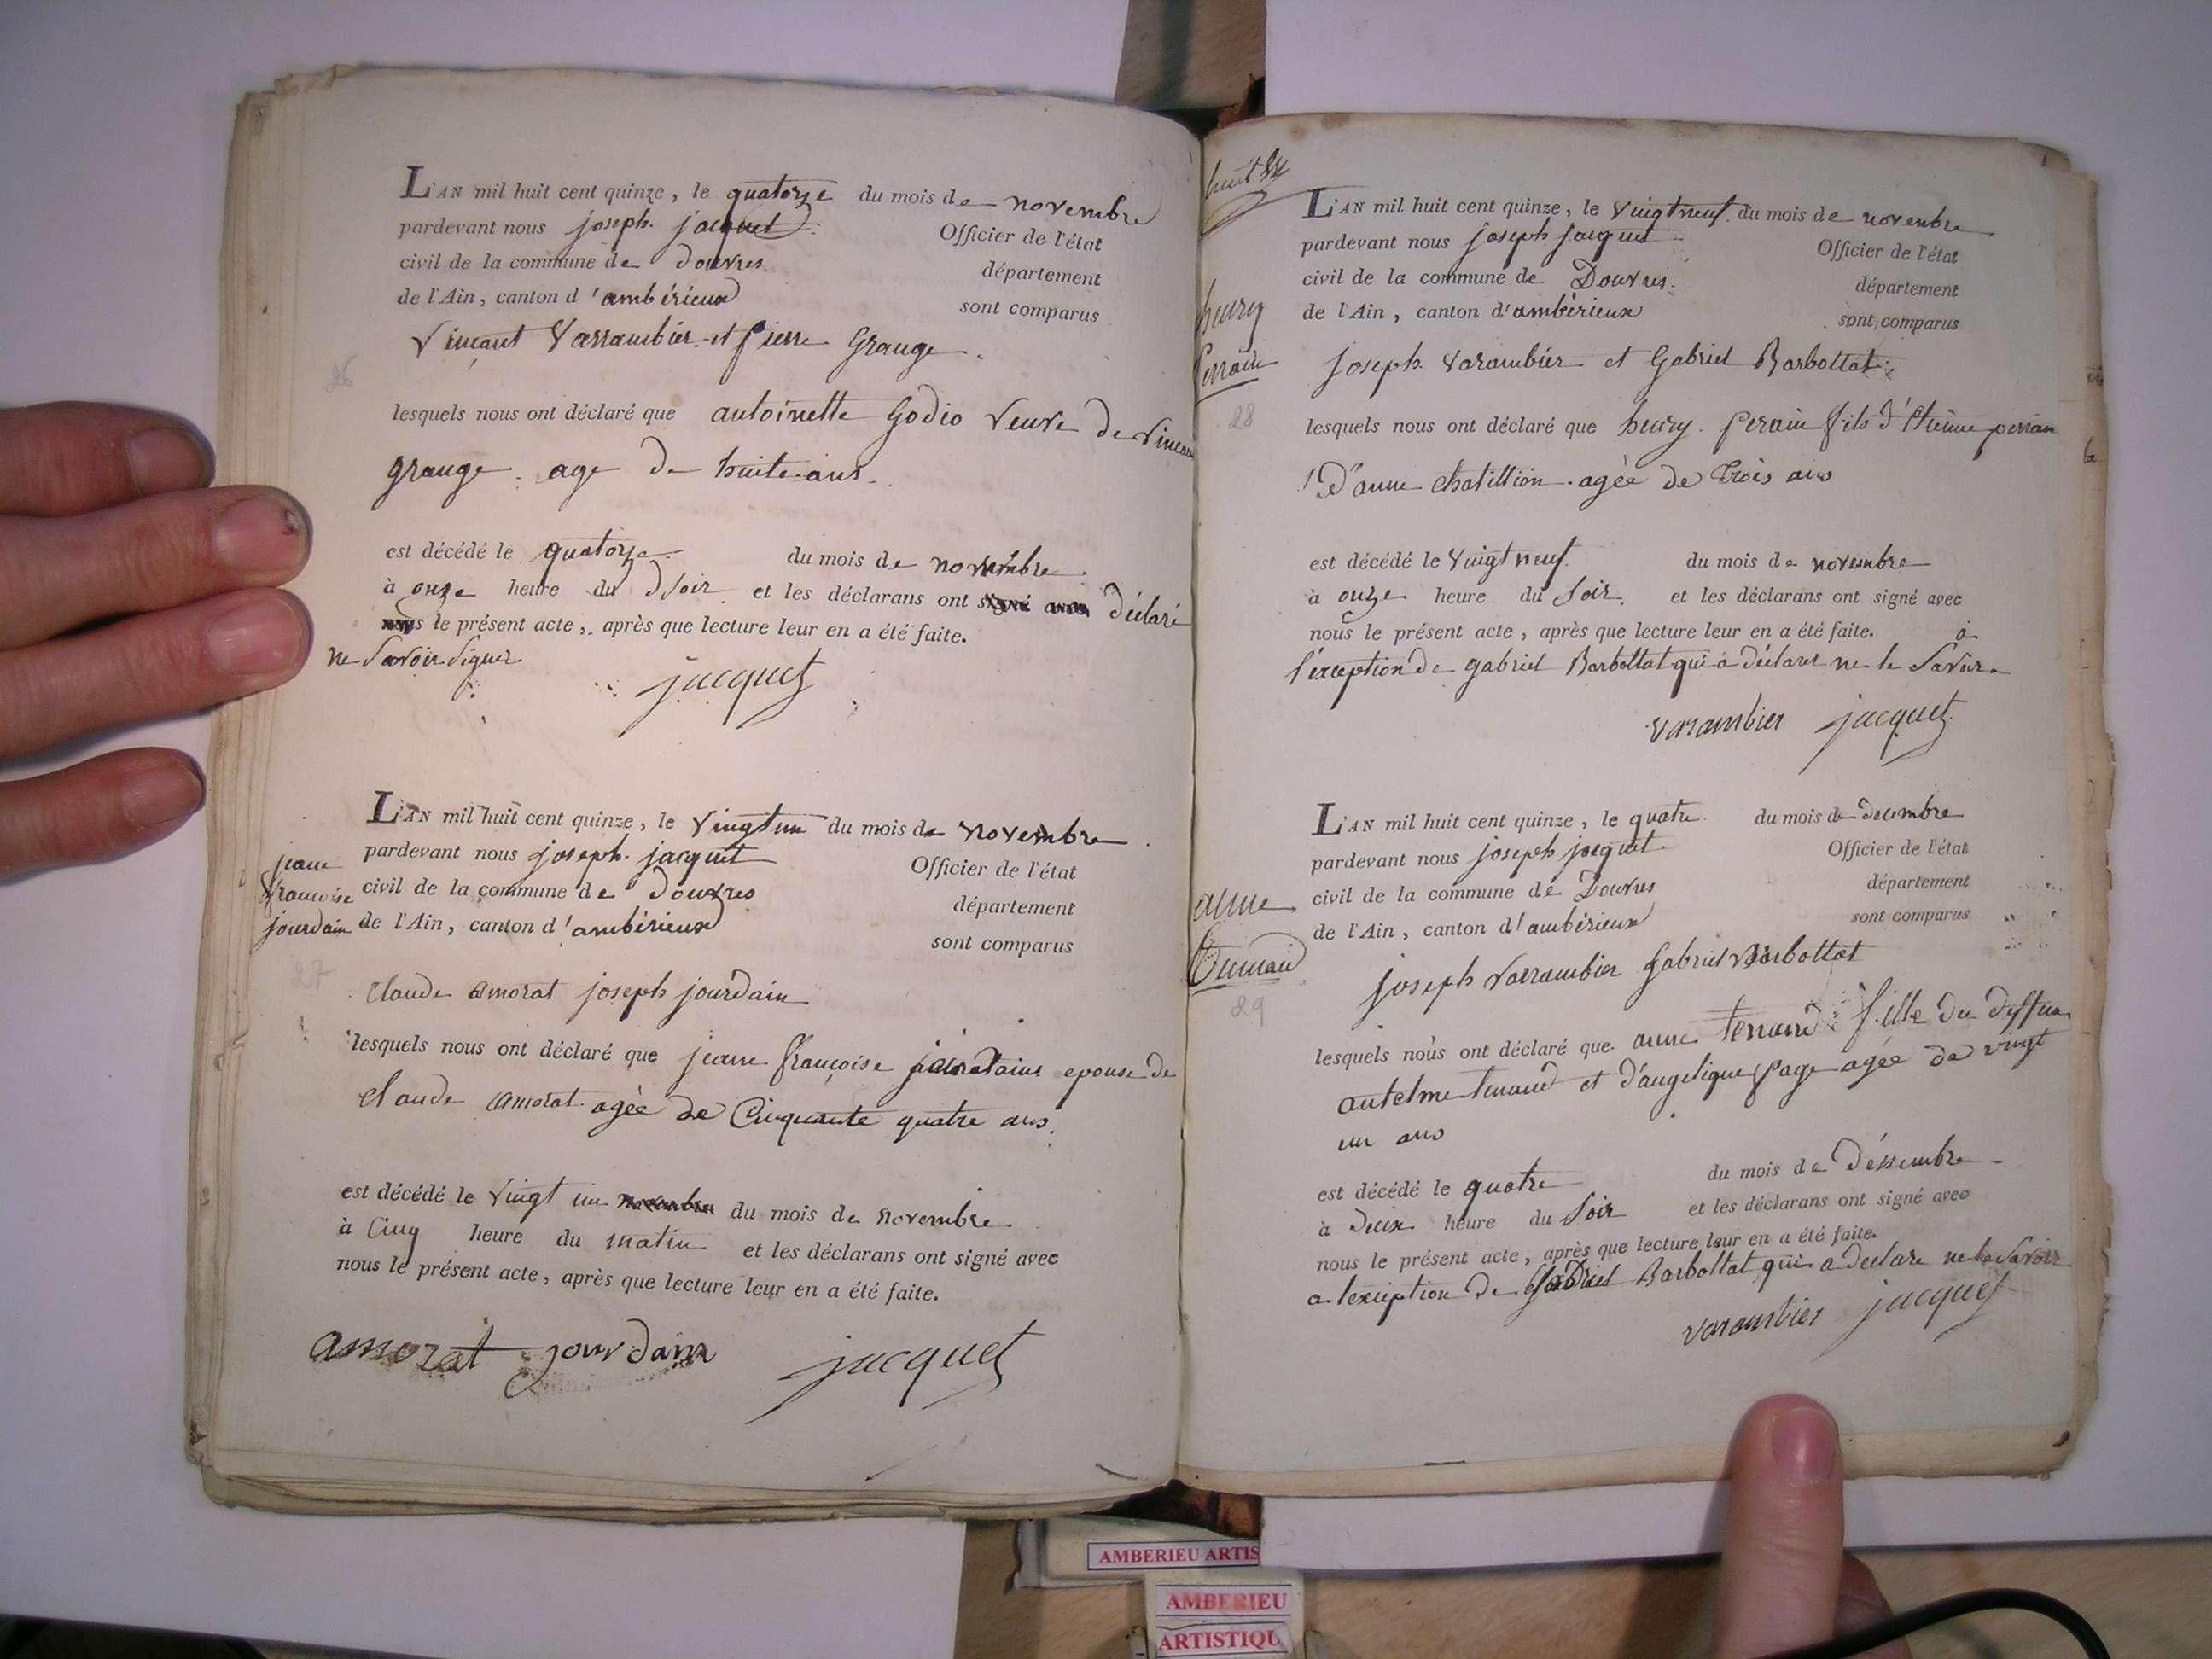 L'AN mil huit cent quinze, le quatorze du mois de novembre
pardevant nous joseph jacquet Officier de l'état
civil de la commune de douvres département
de l'Ain, canton d'ambérieux sont comparus
Vincant Varrambier et pierre Grange
26
lesquels nous ont déclaré que antoinette Godio veuve de vincan
grange age de huite ans
est décédé le quatorze du mois de novembre
à onze heure du Soir et les déclarans ont signé avec déclaré
nous le présent acte, après que lecture leur en a été faite.
ne Savoir Signer
jacquet
L'AN mil huit cent quinze, le vingt un du mois de novembre
pardevant nous joseph jacquet Officier de l'état
civil de la commune de douvres département
de l'Ain, canton d'ambérieux sont comparus
jeane
francoise
jourdain
27
Claude amorat joseph jourdain
lesquels nous ont déclaré que jeanne françoise jourdains epouse de
Claude amorat agèe de Cinquante quatre ans
est décédé le vingt un novembre du mois de novembre
à Cinq heure du matin et les déclarans ont signé avec
nous le présent acte, après que lecture leur en a été faite.
amorat jourdain jacquet
huit
L'AN mil huit cent quinze, le vingt neuf du mois de novembre
pardevant nous joseph jacquet Officier de l'état
civil de la commune de Douvres département
de l'Ain, canton d'ambérieux sont comparus
henry
perrain
28
joseph varambier et Gabriel Barbottat
lesquels nous ont déclaré que henry perain fils d'Etienne perrain
D'anne chatillion agèe de trois ans
est décédé le vingt neuf du mois de novembre
à onze heure du Soir et les déclarans ont signé avec
nous le présent acte, après que lecture leur en a été faite. à
l'exception de gabriel Barbottat qui à déclaret ne le Savoir
varambier jacquet
L'AN mil huit cent quinze, le quatre du mois de decembre
pardevant nous joseph jacquet Officier de l'état
civil de la commune de Douvres département
de l'Ain, canton d'ambérieux sont comparus
anne
Tennand
29
joseph varrambier Gabriel Barbottat
lesquels nous ont déclaré que anne tenand fille du deffun
antelme tenand et d'angelique page agée de vingt
un ans
est décédé le quatre du mois de déssembre
à deux heure du Soir et les déclarans ont signé avec
nous le présent acte, après que lecture leur en a été faite.
a lexception de GaBriel Barbottat qui a declare ne le Savoir
varambier jacquet
AMBERIEU ARTIS
AMBERIEU
ARTISTIQU